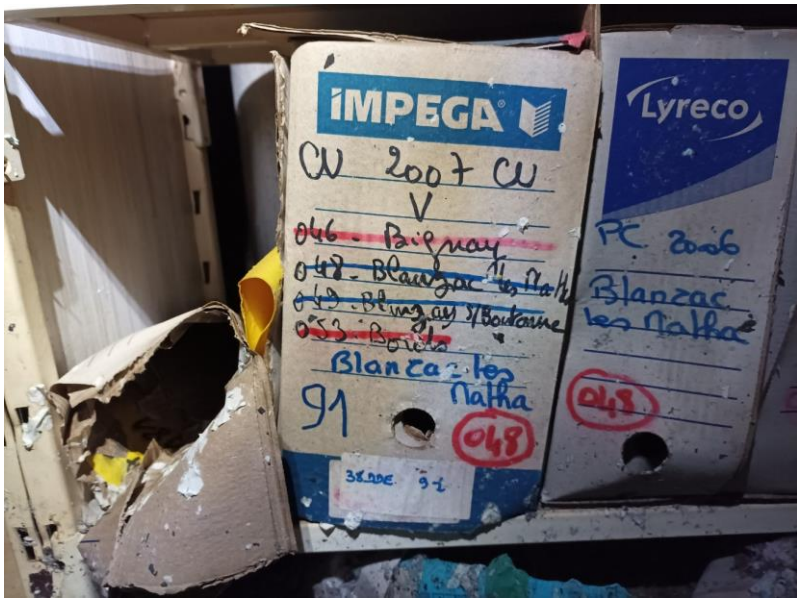 IMPEGA
CU 2007 CU
V
046 - Bignay
048 - Blanzac les Matha
049 - Blinzay s/Boutonne
053 - Bords
Blanzac les
Matha
91
048
Lyreco
PC 2006
Blanzac
les Matha
048